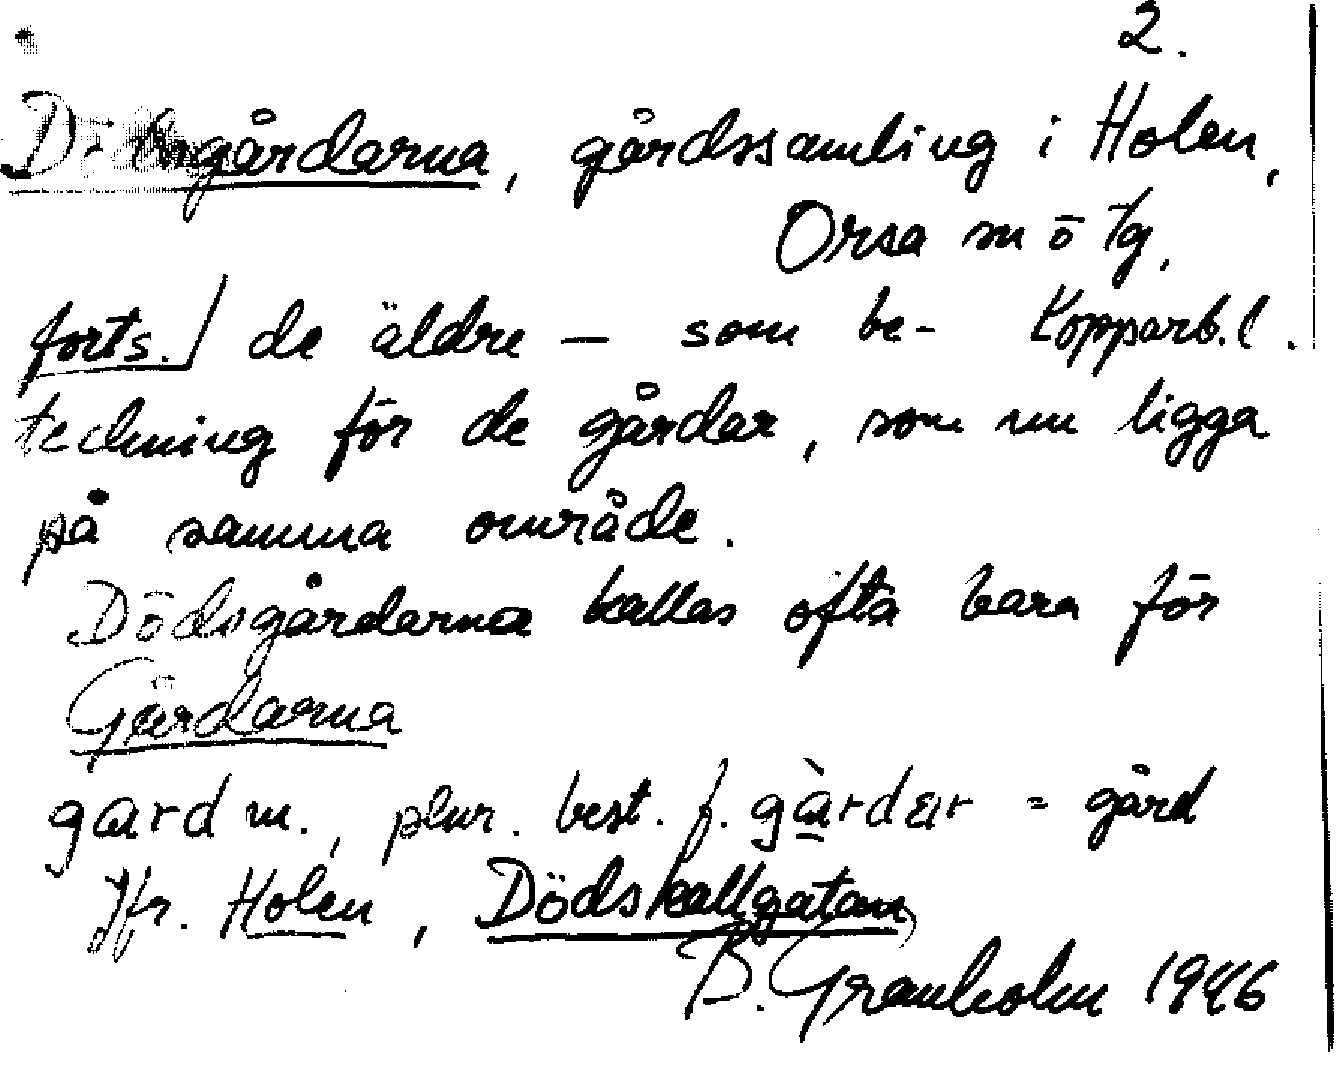 2.
Dödsgårdarna, gårdssamling i Holen,
Orsa sn ō tg,
forts. de äldre — som be- Kopparb. l.
teckning för de gårdar, som nu ligga
på samma område.
Dödsgårdarna kallas ofta bara för
Gårdarna
gard m., plur. best. f. gàrdar = gård
Jfr. Holen, Dödskallgatan
B. Granholm 1946